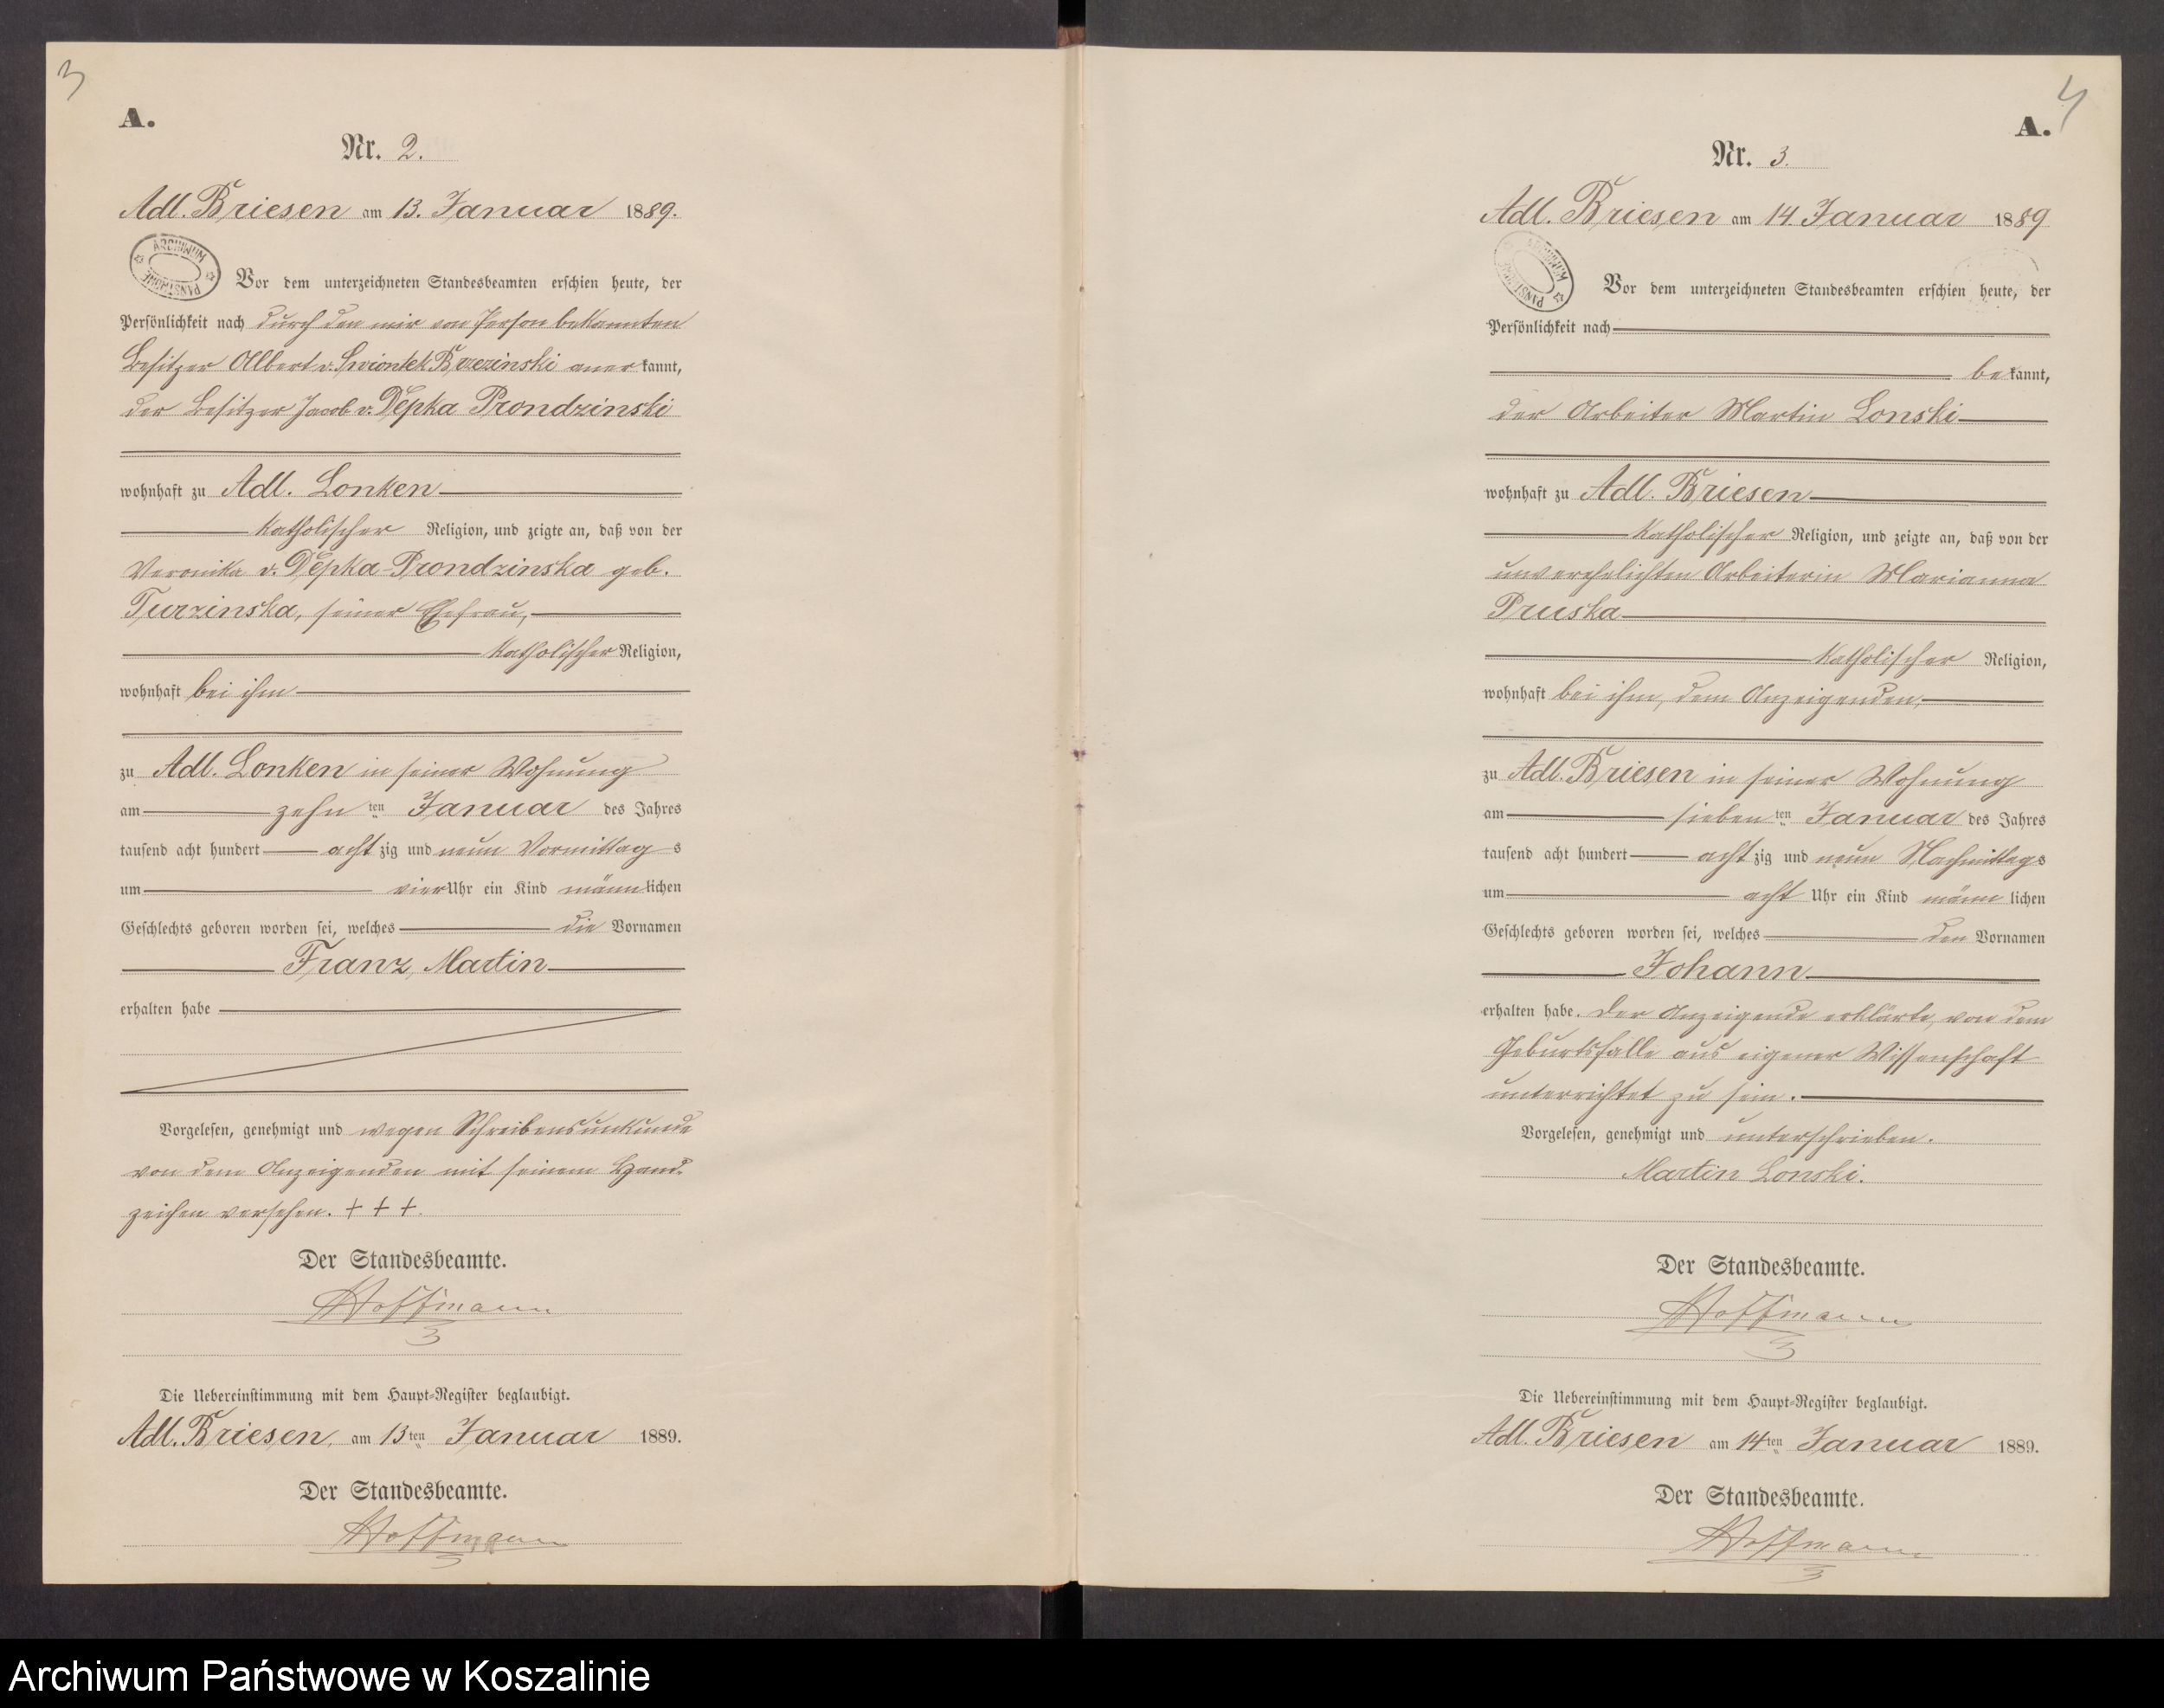 3
A.
Nr. 2.
Adl. Briesen am 13. Januar 1889.
ARCHIWUM PAŃSTWOWE
Vor dem unterzeichneten Standesbeamten erschien heute, der
Persönlichkeit nach durch den mir von Person bekannten
Besitzer Albert v. Swiontek Brzezinski aner kannt,
der Besitzer Jacob v. Depka Prondzinski
wohnhaft zu Adl. Lonken
katholischer Religion, und zeigte an, daß von der
Veronika v. Depka-Prondzinska geb.
Turzinska, seiner Ehefrau,
katholischer Religion,
wohnhaft bei ihm
zu Adl. Lonken in seiner Wohnung
am zehn ten Januar des Jahres
tausend acht hundert acht zig und neun Vormittag s
um vier Uhr ein Kind männ lichen
Geschlechts geboren worden sei, welches die Vornamen
Franz, Martin
erhalten habe
Vorgelesen, genehmigt und wegen Schreibensunkunde
von dem Anzeigenden mit seinem Hand-
zeichen versehen. + + +.
Der Standesbeamte.
Hoffmann
Die Uebereinstimmung mit dem Haupt-Register beglaubigt.
Adl. Briesen, am 13ten Januar 1889.
Der Standesbeamte.
Hoffmann
4
A.
Nr. 3.
Adl. Briesen am 14. Januar 1889
ARCHIWUM PAŃSTWOWE
Vor dem unterzeichneten Standesbeamten erschien heute, der
Persönlichkeit nach
be kannt,
der Arbeiter Martin Lonski
wohnhaft zu Adl. Briesen
katholischer Religion, und zeigte an, daß von der
unverehelichten Arbeiterin Marianna
Pruska
katholischer Religion,
wohnhaft bei ihm, dem Anzeigenden,
zu Adl. Briesen in seiner Wohnung
am sieben ten Januar des Jahres
tausend acht hundert acht zig und neun Nachmittags
um acht Uhr ein Kind männ lichen
Geschlechts geboren worden sei, welches den Vornamen
Johann
erhalten habe. Der Anzeigende erklärte, von dem
Geburtsfalle aus eigener Wissenschaft
unterrichtet zu sein.
Vorgelesen, genehmigt und unterschrieben.
Martin Lonski.
Der Standesbeamte.
Hoffmann
Die Uebereinstimmung mit dem Haupt-Register beglaubigt.
Adl. Briesen am 14ten Januar 1889.
Der Standesbeamte.
Hoffmann
Archiwum Państwowe w Koszalinie